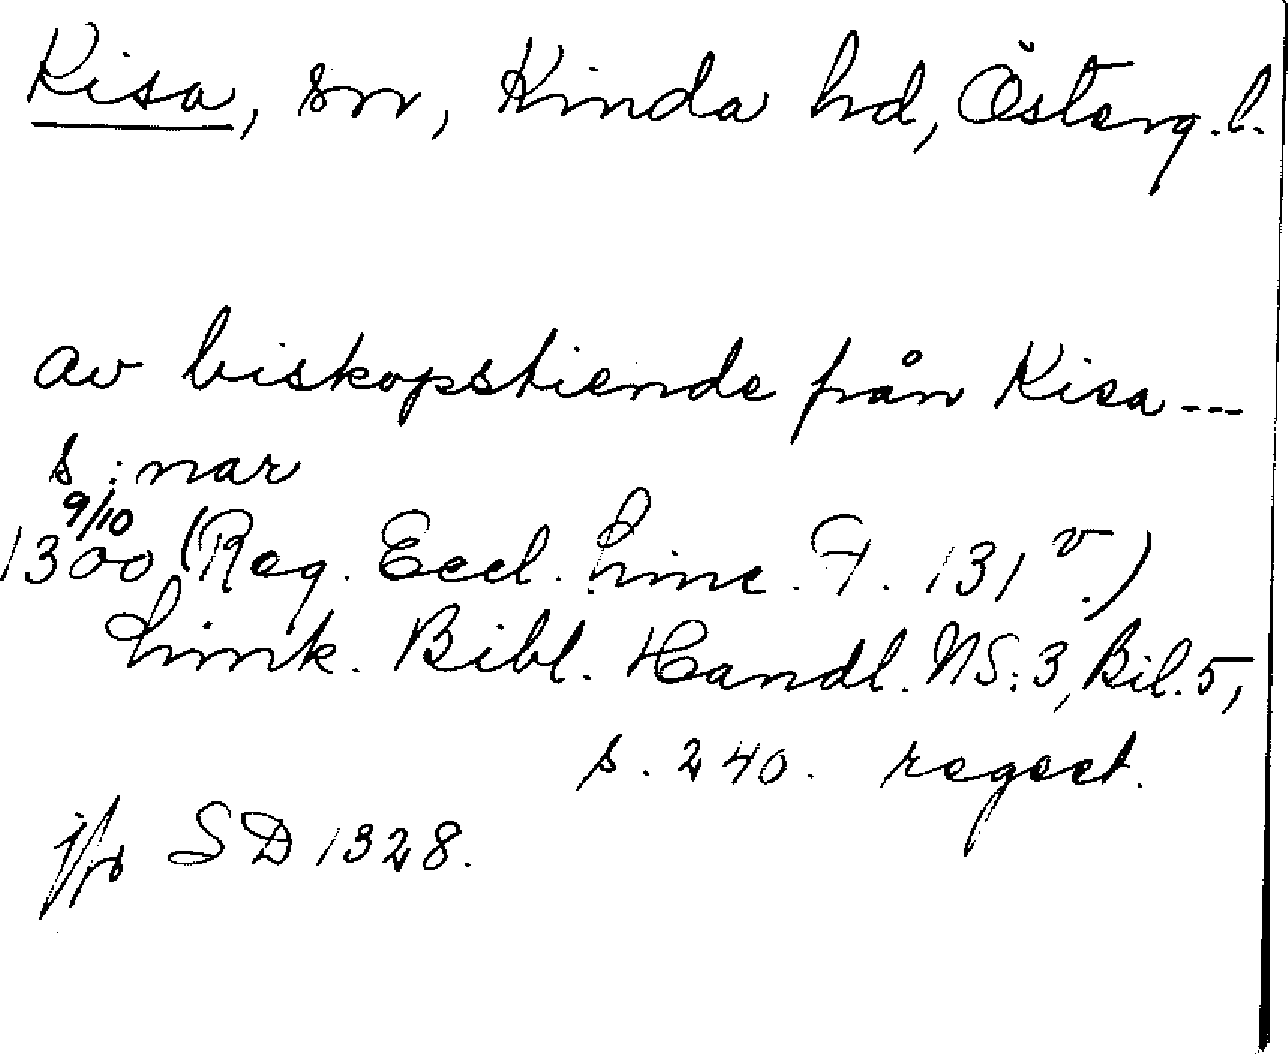 Kisa, sn, Kinda hd, Österg. l.
av biskopstiende från Kisa ---
s:nar
1300 9/10 (Reg. Eccl. Linc. F. 131 v.)
Link. Bibl. Handl. NS:3, Bil. 5,
s. 240. regest.
jfr SD 1328.